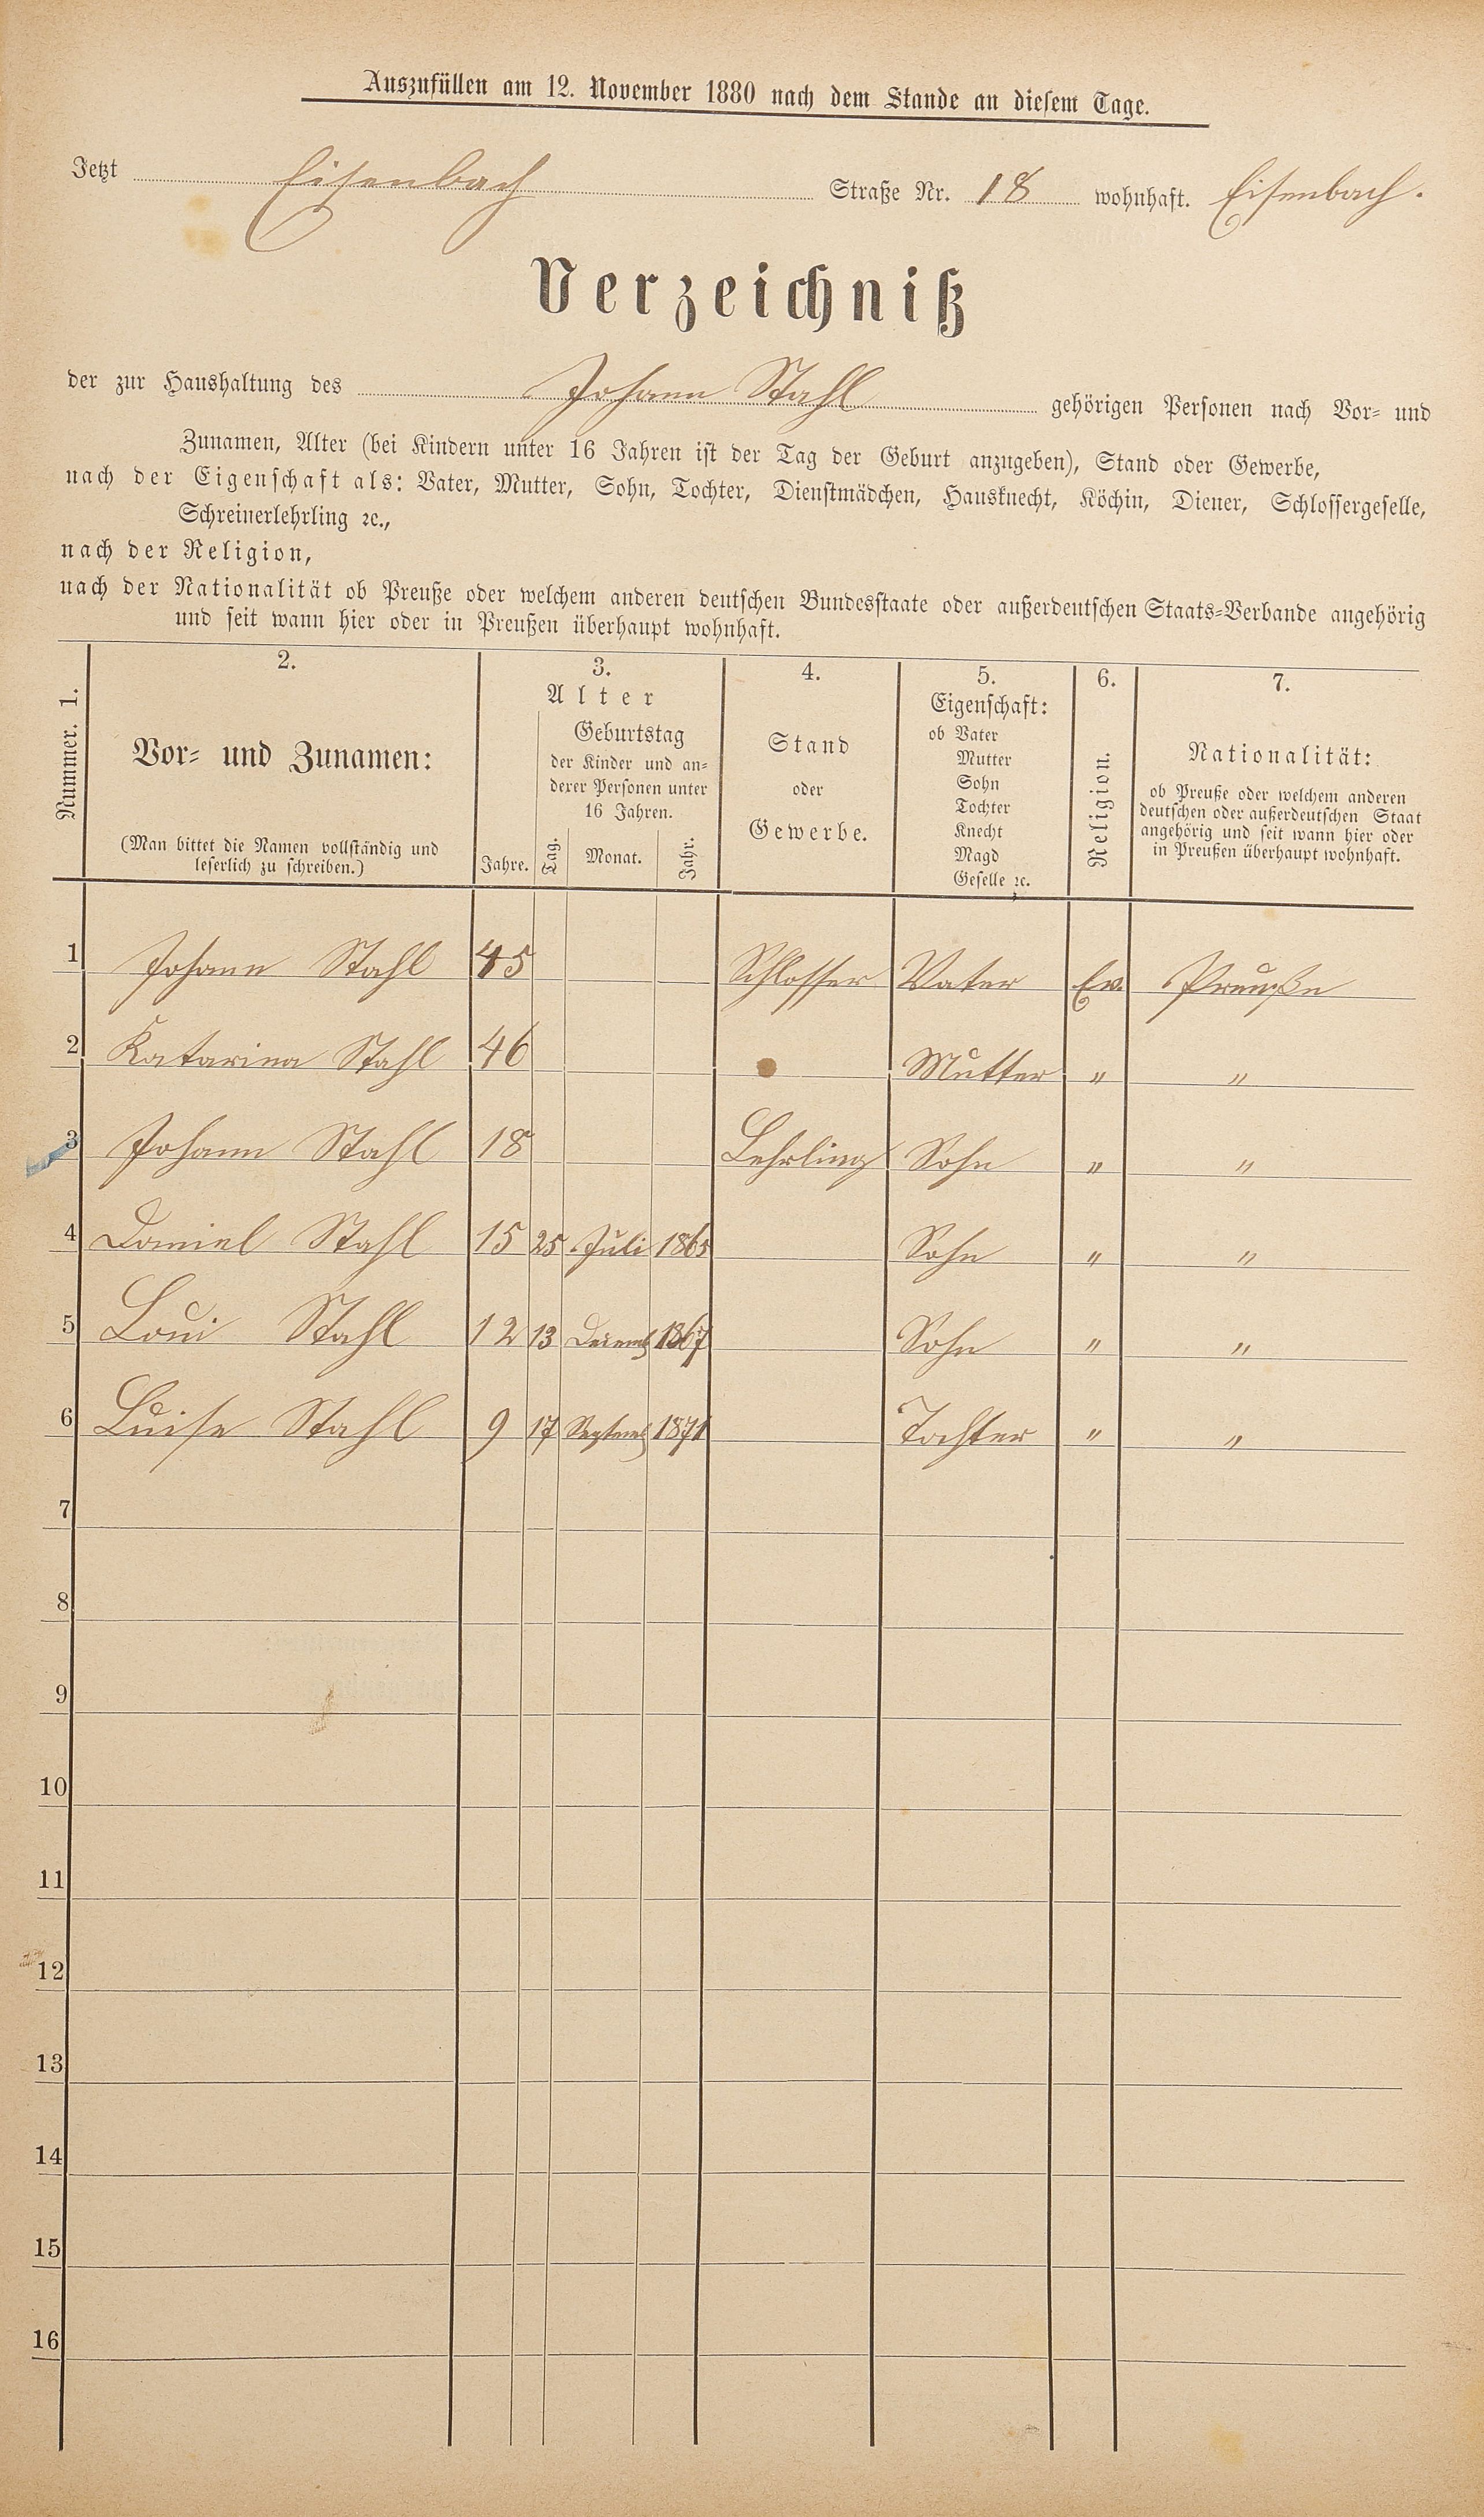 Auszufüllen am 12. November 1880 nach dem Stande an diesem Tage.
Jetzt Eisenbach Straße Nr. 18 wohnhaft. Eisenbach.
Verzeichniß
der zur Haushaltung des Johann Stahl gehörigen Personen nach Vor- und
Zunamen, Alter (bei Kindern unter 16 Jahren ist der Tag der Geburt anzugeben), Stand oder Gewerbe,
nach der Eigenschaft als: Vater, Mutter, Sohn, Tochter, Dienstmädchen, Hausknecht, Köchin, Diener, Schlossergeselle,
Schreinerlehrling ꝛc.,
nach der Religion,
nach der Nationalität ob Preuße oder welchem anderen deutschen Bundesstaate oder außerdeutschen Staats-Verbande angehörig
und seit wann hier oder in Preußen überhaupt wohnhaft.
Nummer. 1.
2.
Vor- und Zunamen:
(Man bittet die Namen vollständig und
leserlich zu schreiben.)
3.
Alter
Jahre.
Geburtstag
der Kinder und an-
derer Personen unter
16 Jahren.
Tag. Monat. Jahr.
4.
Stand
oder
Gewerbe.
5.
Eigenschaft:
ob Vater
Mutter
Sohn
Tochter
Knecht
Magd
Geselle ꝛc.
6.
Religion.
7.
Nationalität:
ob Preuße oder welchem anderen
deutschen oder außerdeutschen Staat
angehörig und seit wann hier oder
in Preußen überhaupt wohnhaft.
1 Johann Stahl 45 Schlosser Vater Ev. Preuße
2 Katarina Stahl 46 Mutter " "
3 Johann Stahl 18 Lehrling Sohn " "
4 Daniel Stahl 15 25 Juli 1865 Sohn " "
5 Loui Stahl 12 13 Decemb 1867 Sohn " "
6 Luise Stahl 9 17 Septemb 1871 Tochter " "
7
8
9
10
11
12
13
14
15
16